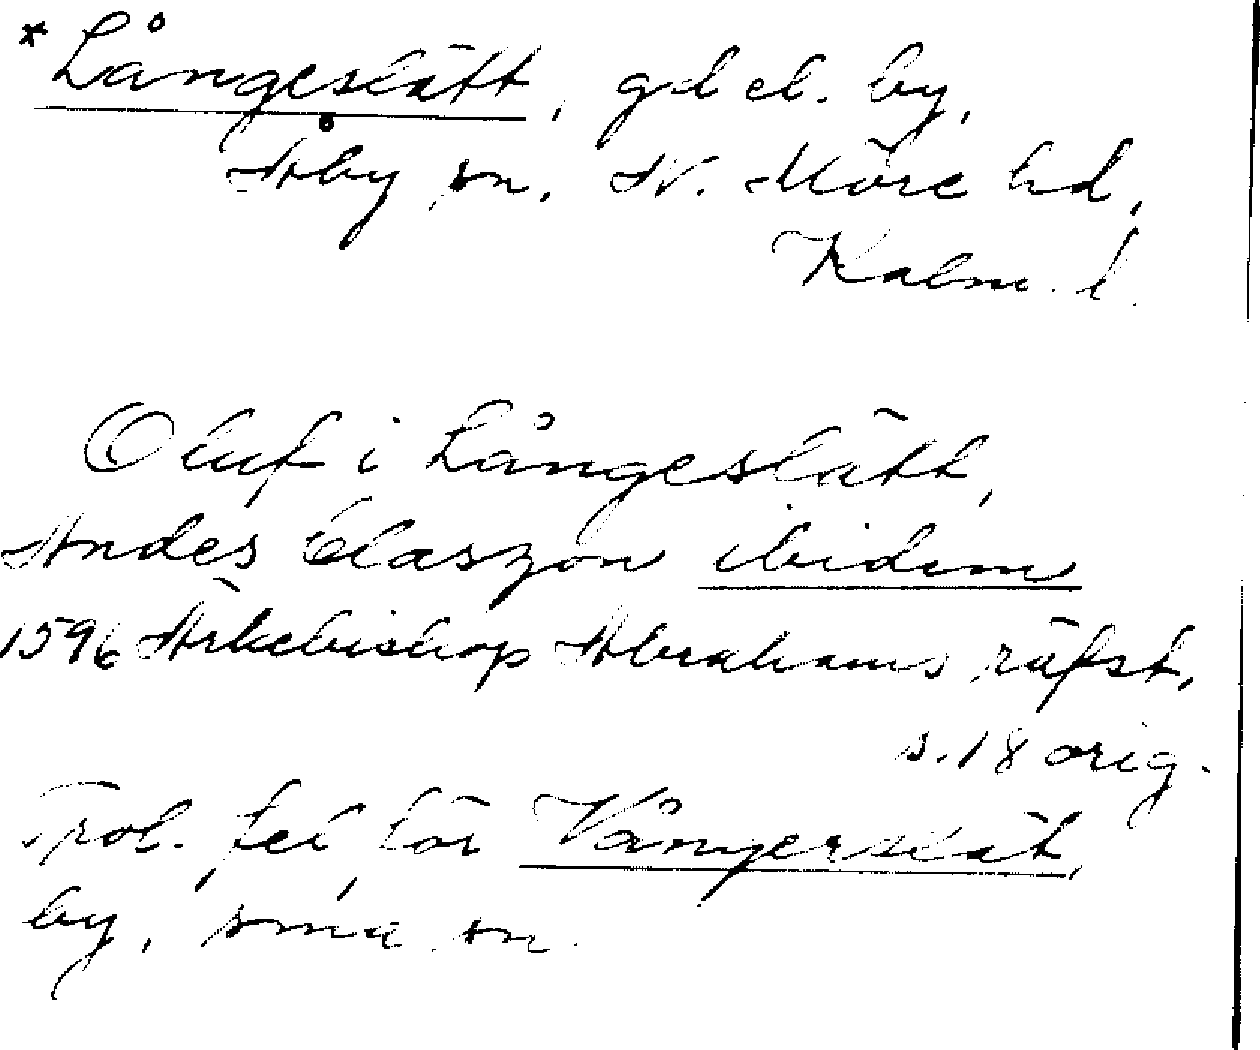 *Långeslätt, gd el. by,
Åby sn, N. Möre hd,
Kalm. l.
Oluf i Långeslätt,
Andes Claszon ibidem
1596 Ärkebiskop Abrahams räfst,
s. 18 orig.
Trol. fel för Vångerslät,
by, sma sn.